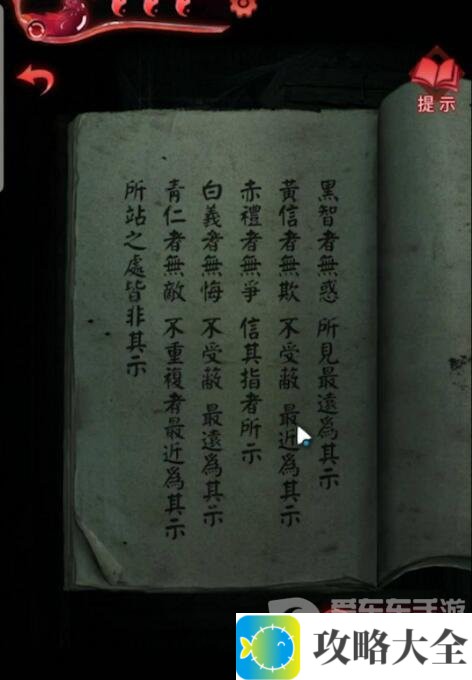 提示
黑智者無惑 所見最遠為其示
黃信者無欺 不受蔽 最近為其示
赤禮者無爭 信其指者所示
白義者無悔 不受蔽 最遠為其示
青仁者無敵 不重複者最近為其示
所站之處皆非其示
愛車車手游
攻略大全